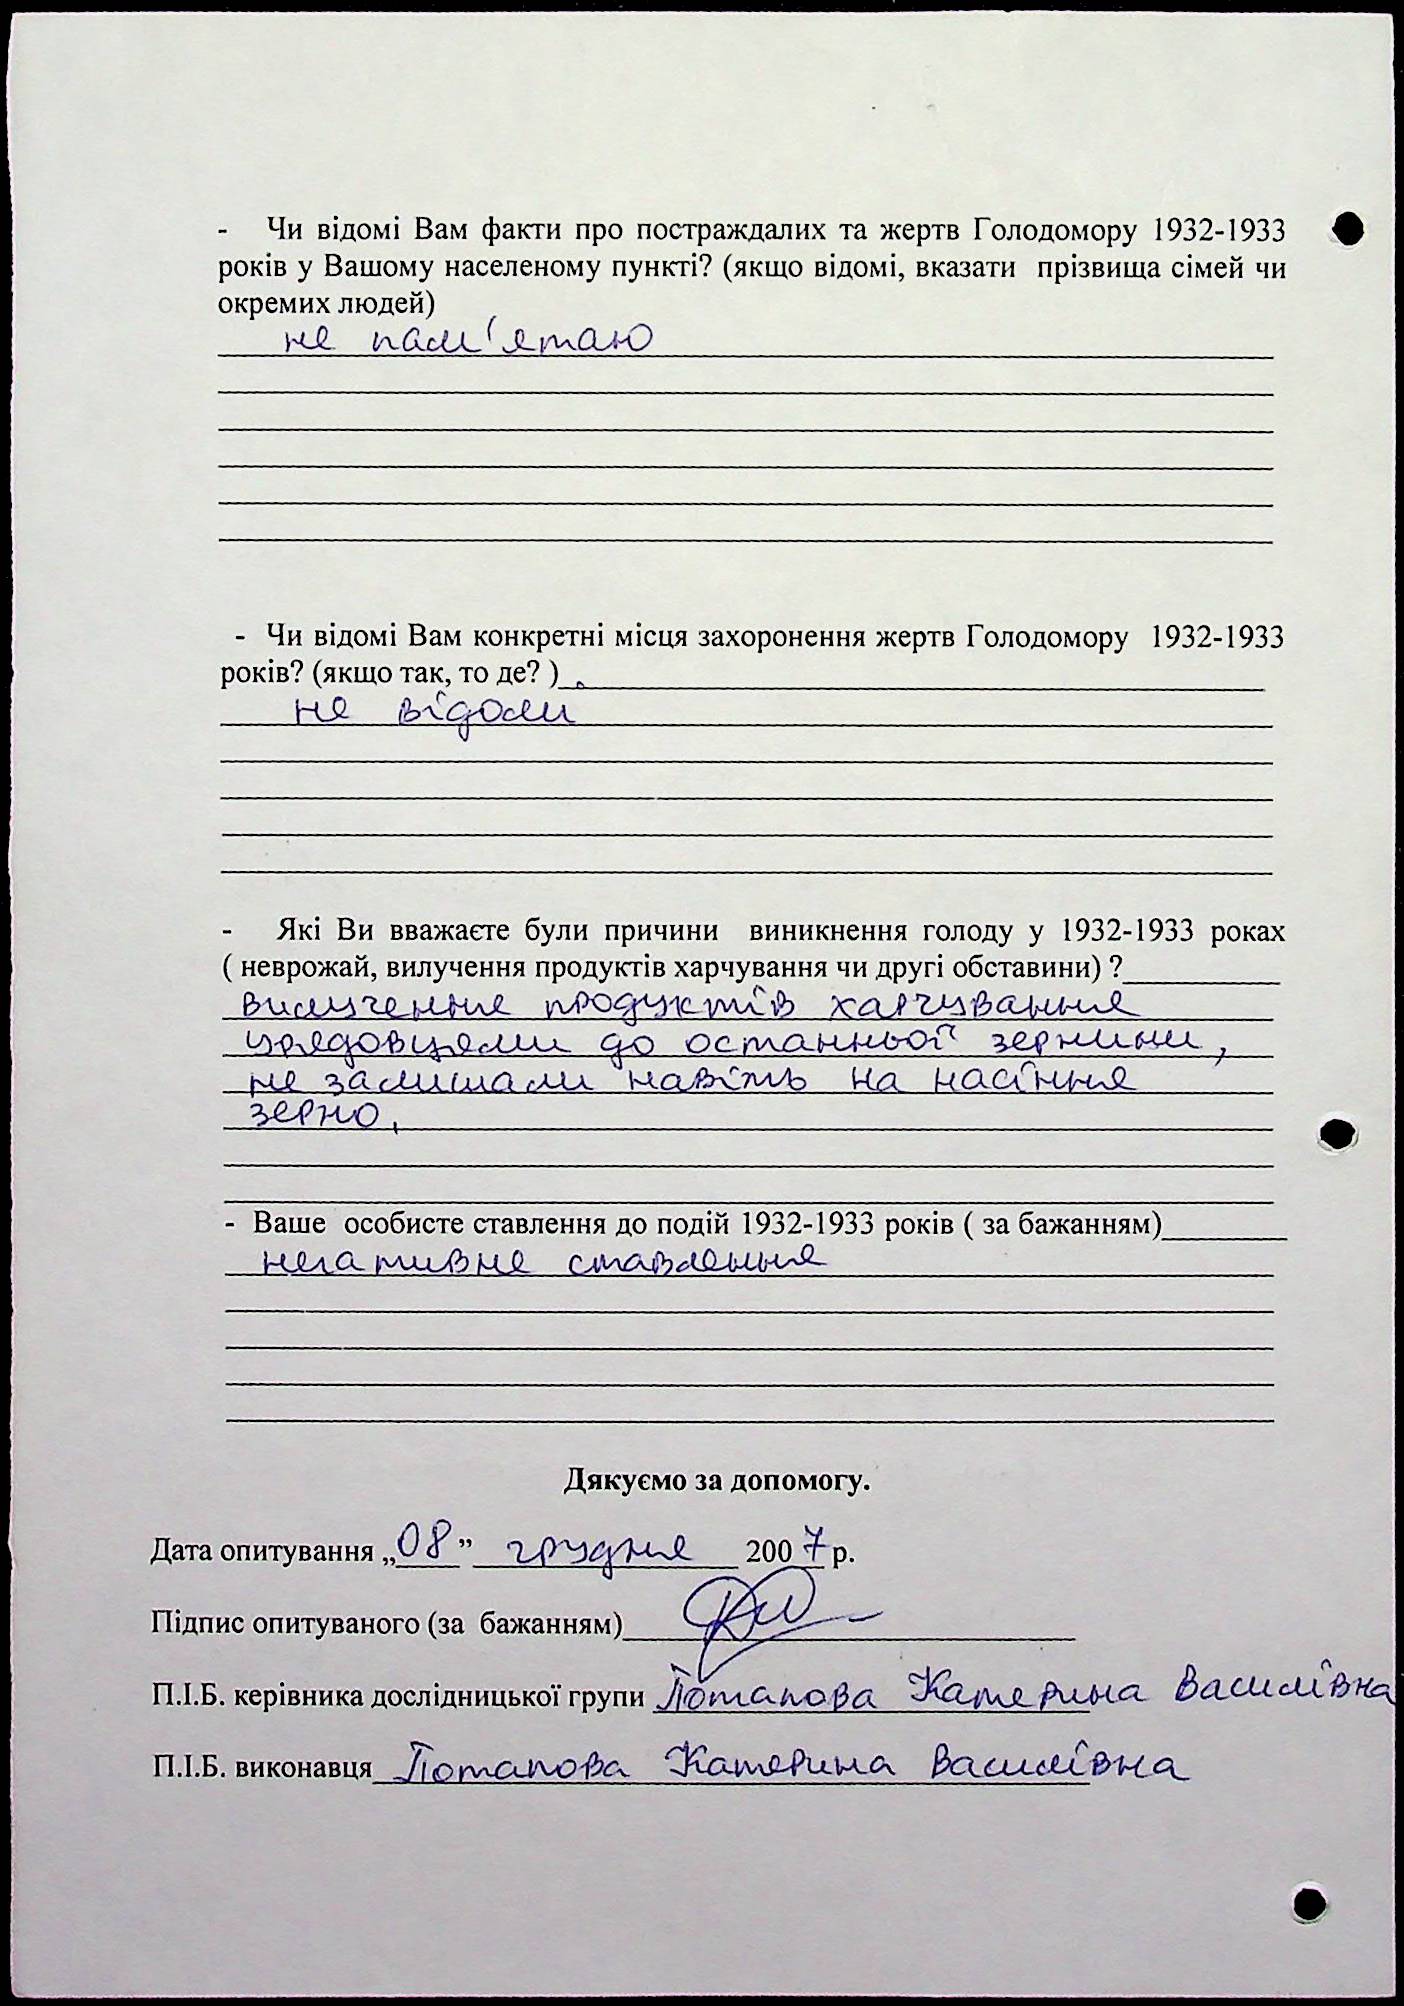 - Чи відомі Вам факти про постраждалих та жертв Голодомору 1932-1933
років у Вашому населеному пункті? (якщо відомі, вказати прізвища сімей чи
окремих людей)
не пам'ятаю
- Чи відомі Вам конкретні місця захоронення жертв Голодомору 1932-1933
років? (якщо так, то де? )
не відоми
- Які Ви вважаєте були причини виникнення голоду у 1932-1933 роках
( неврожай, вилучення продуктів харчування чи другі обставини) ?
вилучення продуктів харчування
урядовцями до останньої зернини,
не залишали навіть на насіння
зерно.
- Ваше особисте ставлення до подій 1932-1933 років ( за бажанням)
негативне ставлення
Дякуємо за допомогу.
Дата опитування „08” грудня 2007 р.
Підпис опитуваного (за бажанням)
П.І.Б. керівника дослідницької групи Потапова Катерина Василівна
П.І.Б. виконавця Потапова Катерина Василівна